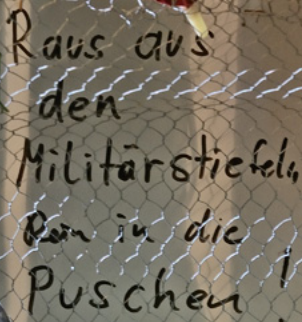 Raus aus
den
Militärstiefeln,
Rein in die
Puschen!